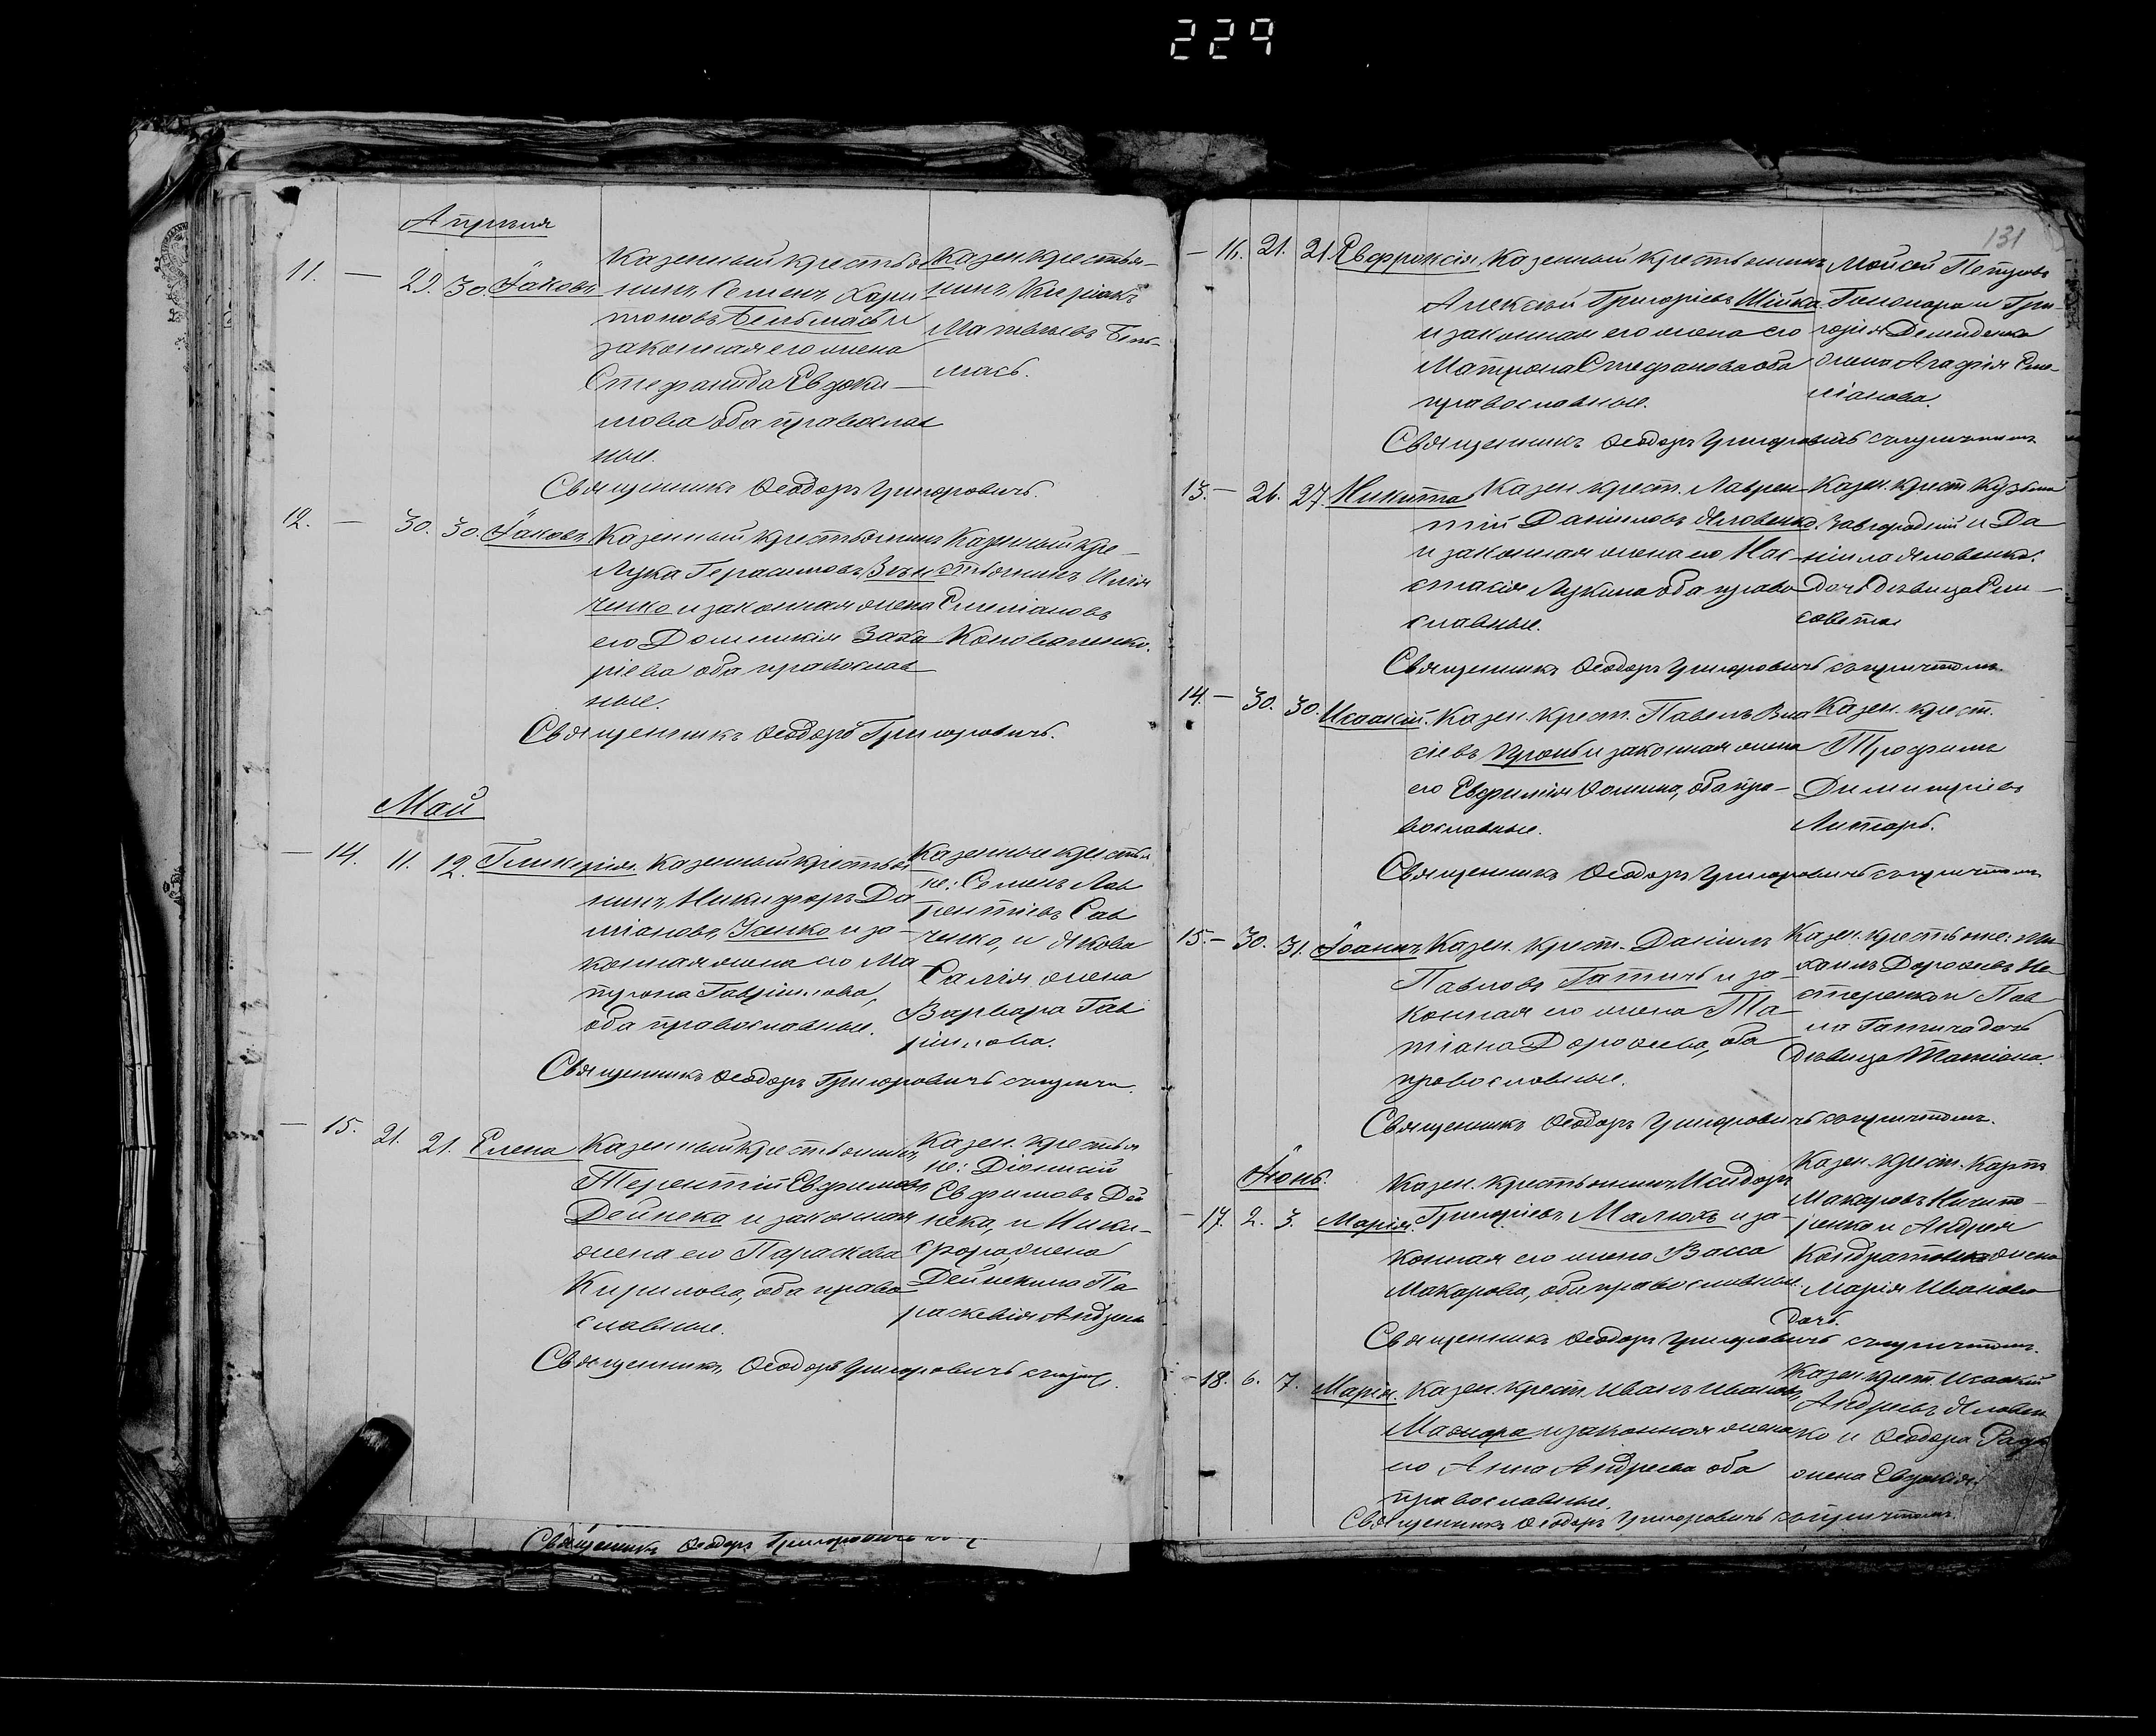 229
Апрѣля
11. — 29. 30. Іаковъ
Казенный крестья
нинъ Семенъ Хари
тоновъ Бельмасъ и
законная его жена
Стефанида Евдоки-
мова оба православ
ные.
Казен. крестья-
нинъ Киріакъ
Матвѣевъ Бель-
масъ.
Священникъ Ѳеодоръ Григоровичъ.
12. — 30. 30. Іаковъ
Казенный крестьянинъ
Лука Герасимовъ
ченко и законная жена
его Домникія Заха
ріева оба православ
ные.
Казенный кре-
стьянинъ Илія
Емеліановъ
Коноваленко.
Священникъ Ѳеодоръ Григоровичъ.
Май
— 14. 11. 12. Гликерія.
Казенный крестья
нинъ Никифоръ Да
міановъ Усенко и за-
конная жена его Ма
трона Гавріилова,
оба православные.
Казенные крестья
не: Семенъ Лав
рентіевъ Сав
ченко, и Якова
жена
Варвара Гав
ріилова.
Священникъ Ѳеодоръ Григоровичъ съ причт.
— 15. 21. 21. Елена
Казенный крестьянинъ
Терентій Евфимовъ
Дейнека и законная
жена его Параскева
Кирилова, оба право
славные.
Казен. крестья
не: Діонисій
Евфимовъ Дей
нека, и Ники-
фора жена
Дейнекина Па
раскевія Андреева
Священникъ Ѳеодоръ Григоровичъ съ прич.
Священникъ Ѳеодоръ Григоровичъ
131
— 16. 21. 21. Евфроксія.
Казенный крестьянинъ
Алексѣй Григоріевъ Шійка
и законная его жена его
Матрона Стефанова оба
православные.
Моисей Петровъ
Гончара и Гри-
горія Демиденка
жена Агафія Еме-
ліанова.
Священникъ Ѳеодоръ Григоровичъ съ причтомъ
13. — 26. 27. Никита
Казен. крест. Лаврен-
тій Даніиловъ Яловенко
и законная жена его Нас-
стасія Лукина оба право
славные.
Казен. крест. Кузьма
Завгородній и Да
ніила Яловенка
дочь дѣвица Ели-
савета
Священникъ Ѳеодоръ Григоровичъ съ причтомъ.
14. — 30. 30. Исаакій.
Казен. крест. Павелъ Вла
сіевъ и законная жена
его Евфимія Ѳомина, оба пра-
вославные.
Казен. крест.
Трофимъ
Димитріевъ
Литарь.
Священникъ Ѳеодоръ Григоровичъ съ причтомъ
15. — 30. 31. Іоаннъ
Казен. крест. Даніилъ
Павловъ Гатичъ и за-
конная его жена Та-
тіана Дороѳеева, оба
православные.
Казен. крестьяне: Ми
хаилъ Дороѳеевъ Не
стеренко и Пав
ла Гатича дочь
дѣвица Татіана.
Священникъ Ѳеодоръ Григоровичъ съ причтомъ.
Іюнь.
— 17. 2. 3. Марія.
Казен. крестьянинъ Исидоръ
Григоріевъ Малюкъ и за-
конная его жена Васса
Макарова, оба православные.
Казен. крест. Карпъ
Макаровъ Ничипо-
ренко и Андрея
Кондратенка жена
Марія Иванова
дочь.
Священникъ Ѳеодоръ Григоровичъ съ причтомъ.
— 18. 6. 7. Марія.
Казен. крест. Иванъ Ивановъ
и законная жена
его Анна Андреева оба
православные.
Казен. крест. Исаакій
Андреевъ Яловен
ко и Ѳеодора
жена Евдокія
Священникъ Ѳеодоръ Григоровичъ съ причтомъ.